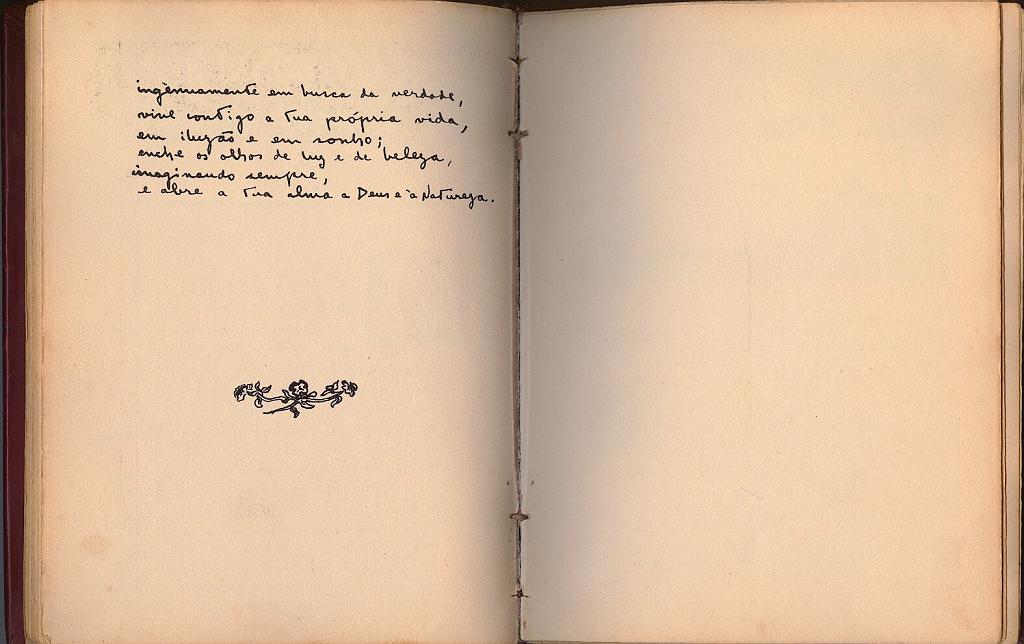 ingènuamente em busca da verdade,
vive contigo a tua própria vida,
em iluzão e em sonho;
enche os olhos de luz e de beleza,
imaginando sempre,
e abre a tua alma a Deus e à Natureza.